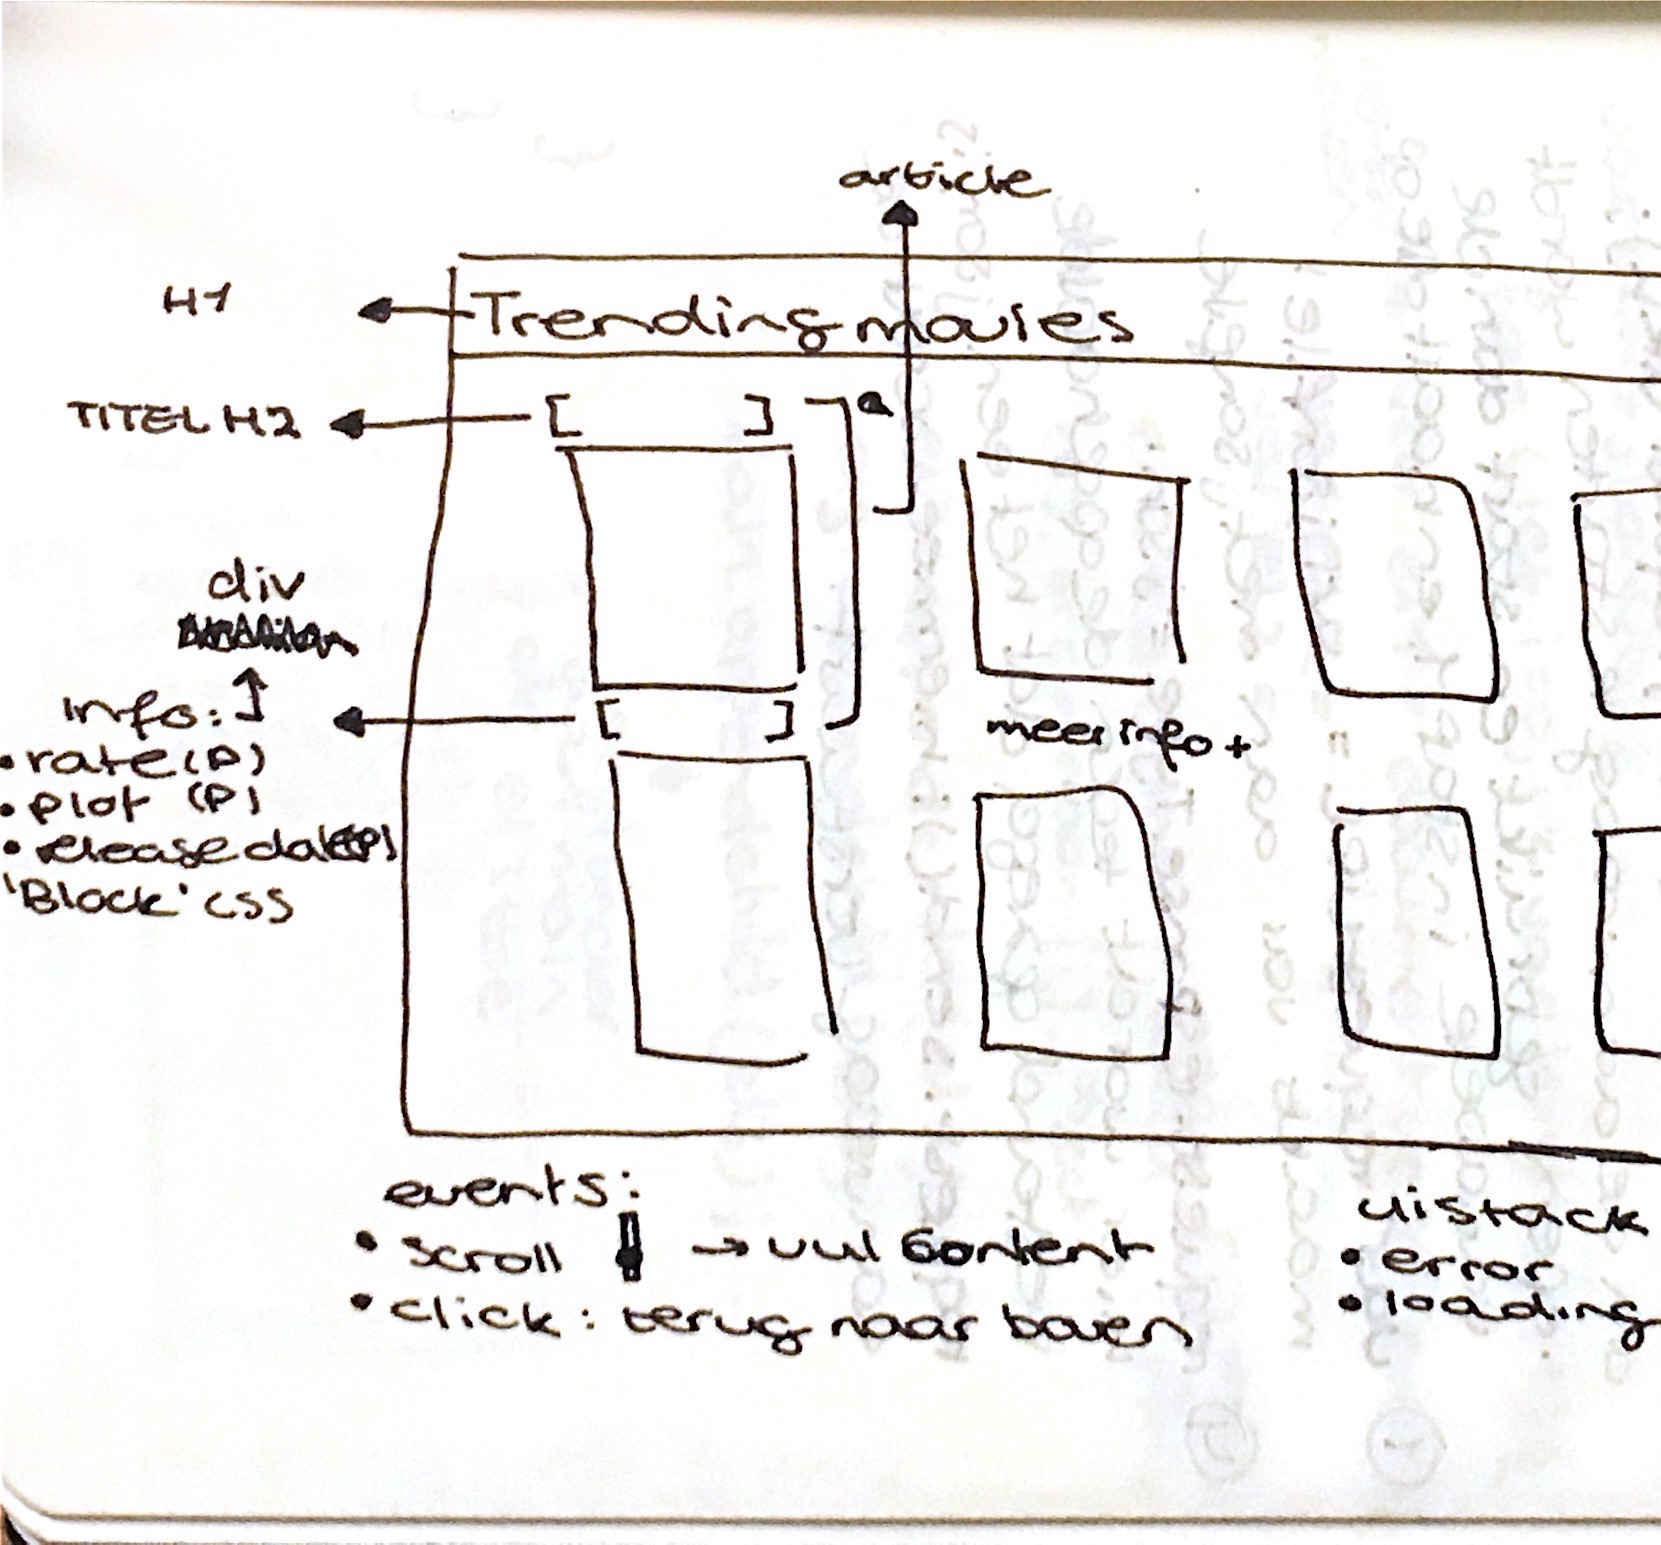 article
H1
Trending movies
TITEL H2
a
div
info:
• rate (P)
• plot (P)
• release date (P)
'Block' css
meer info +
events:
• scroll → vul content
• click : terug naar boven
uistack
• error
• loading